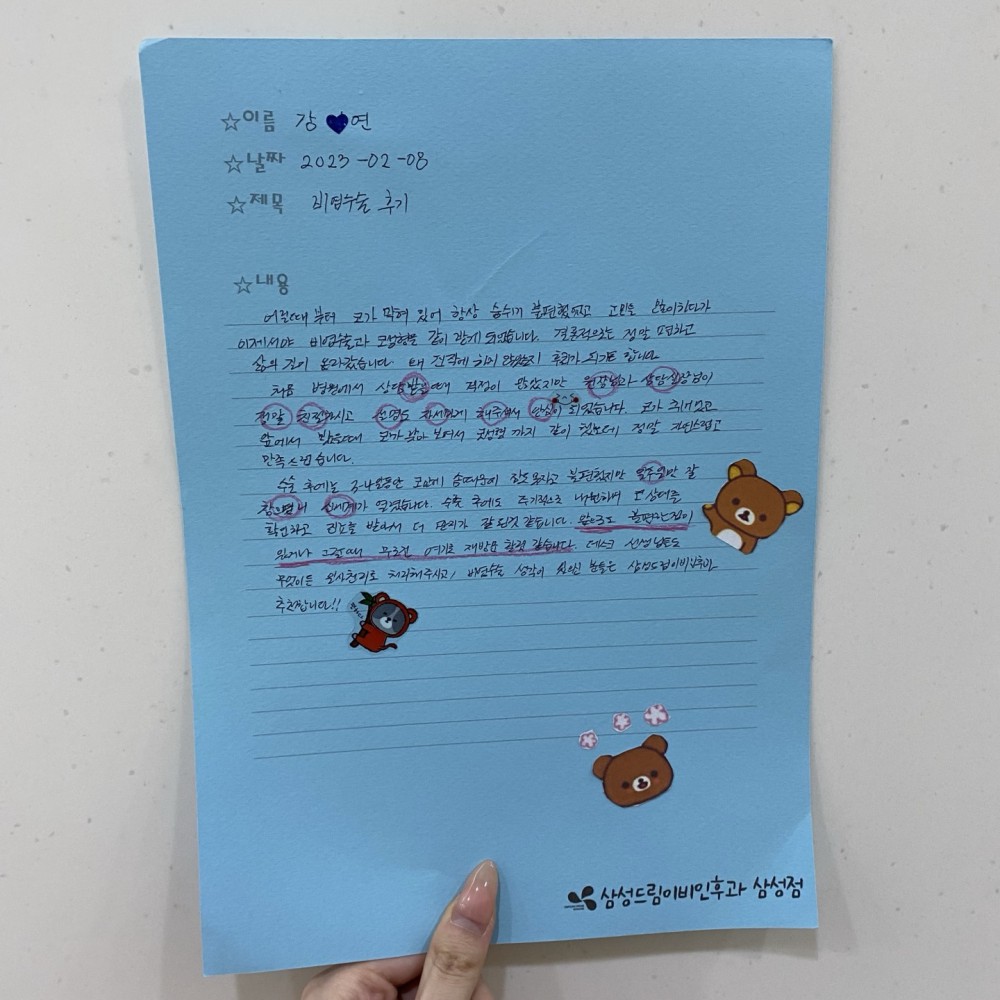 ☆이름 강 ♥연
☆날짜 2023-02-08
☆제목 비염수술 후기
☆내용
어릴때 부터 코가 막혀 있어 항상 숨쉬기 불편했었고 고민을 많이하다가
이제서야 비염수술과 코성형을 같이 받게 되었습니다. 결론적으로는 정말 편하고
삶의 질이 올라갔습니다. 왜 진작에 하지 않았는지 후회가 되기도 합니다.
처음 병원에서 상담받을때 걱정이 많았지만 원장님과 상담실장님이
정말 친절하시고 설명을 자세하게 해주셔서 안심이 되었습니다. 코가 휘어있고
앞에서 봤을때 코가 보여서 코성형 까지 같이 했는데 정말 자연스럽고
만족스럽습니다.
수술 후에는 3-4일동안 코막게 솜때문에 잠도 못자고 불편했지만 일주일만 잘
참으면 신세계가 열렸습니다. 수술 후에도 주기적으로 내원하여 코상태를
확인하고 진료를 받아서 더 관리가 잘 된것 같습니다. 앞으로도 불편한점이
있거나 그럴때 무조건 여기로 재방문 할것 같습니다. 데스크 선생님들도
무엇이든 일사천리로 처리해주시고, 비염수술 생각이 있으신 분들은 삼성드림이비인후과
추천합니다!!
삼성드림이비인후과 삼성점